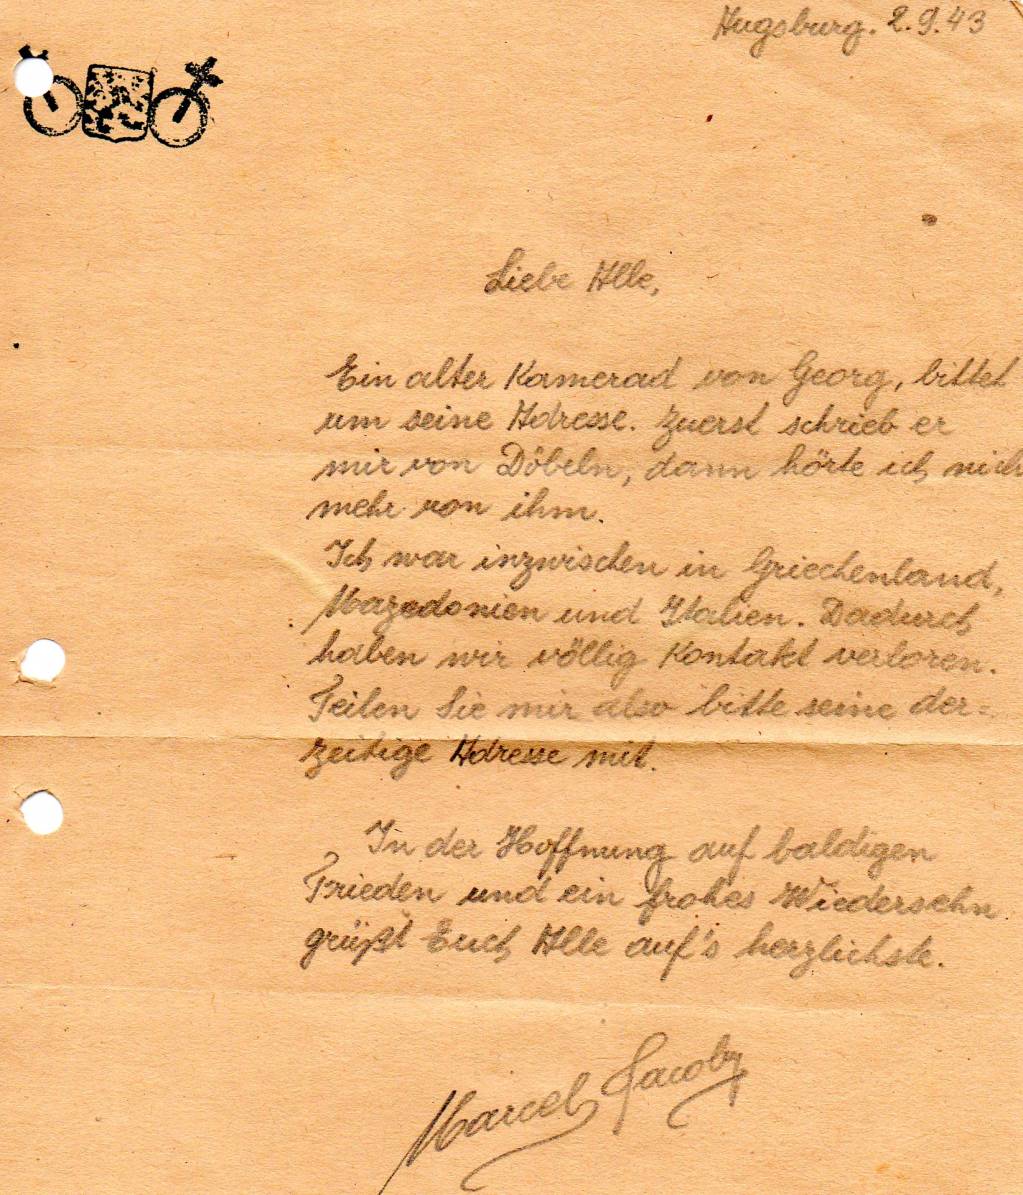 Augsburg. 2.9.43
Liebe Alle,
Ein alter Kamerad von Georg, bittet
um seine Adresse. Zuerst schrieb er
mir von Döbeln, dann hörte ich nich
mehr von ihm.
Ich war inzwischen in Griechenland,
Mazedonien und Italien. Dadurch
haben wir völlig Kontakt verloren.
Teilen Sie mir also bitte seine der=
zeitige Adresse mit.
In der Hoffnung auf baldigen
Frieden und ein frohes Wiedersehn
grüßt Euch Alle auf's herzlichste.
Marcel Jacoby